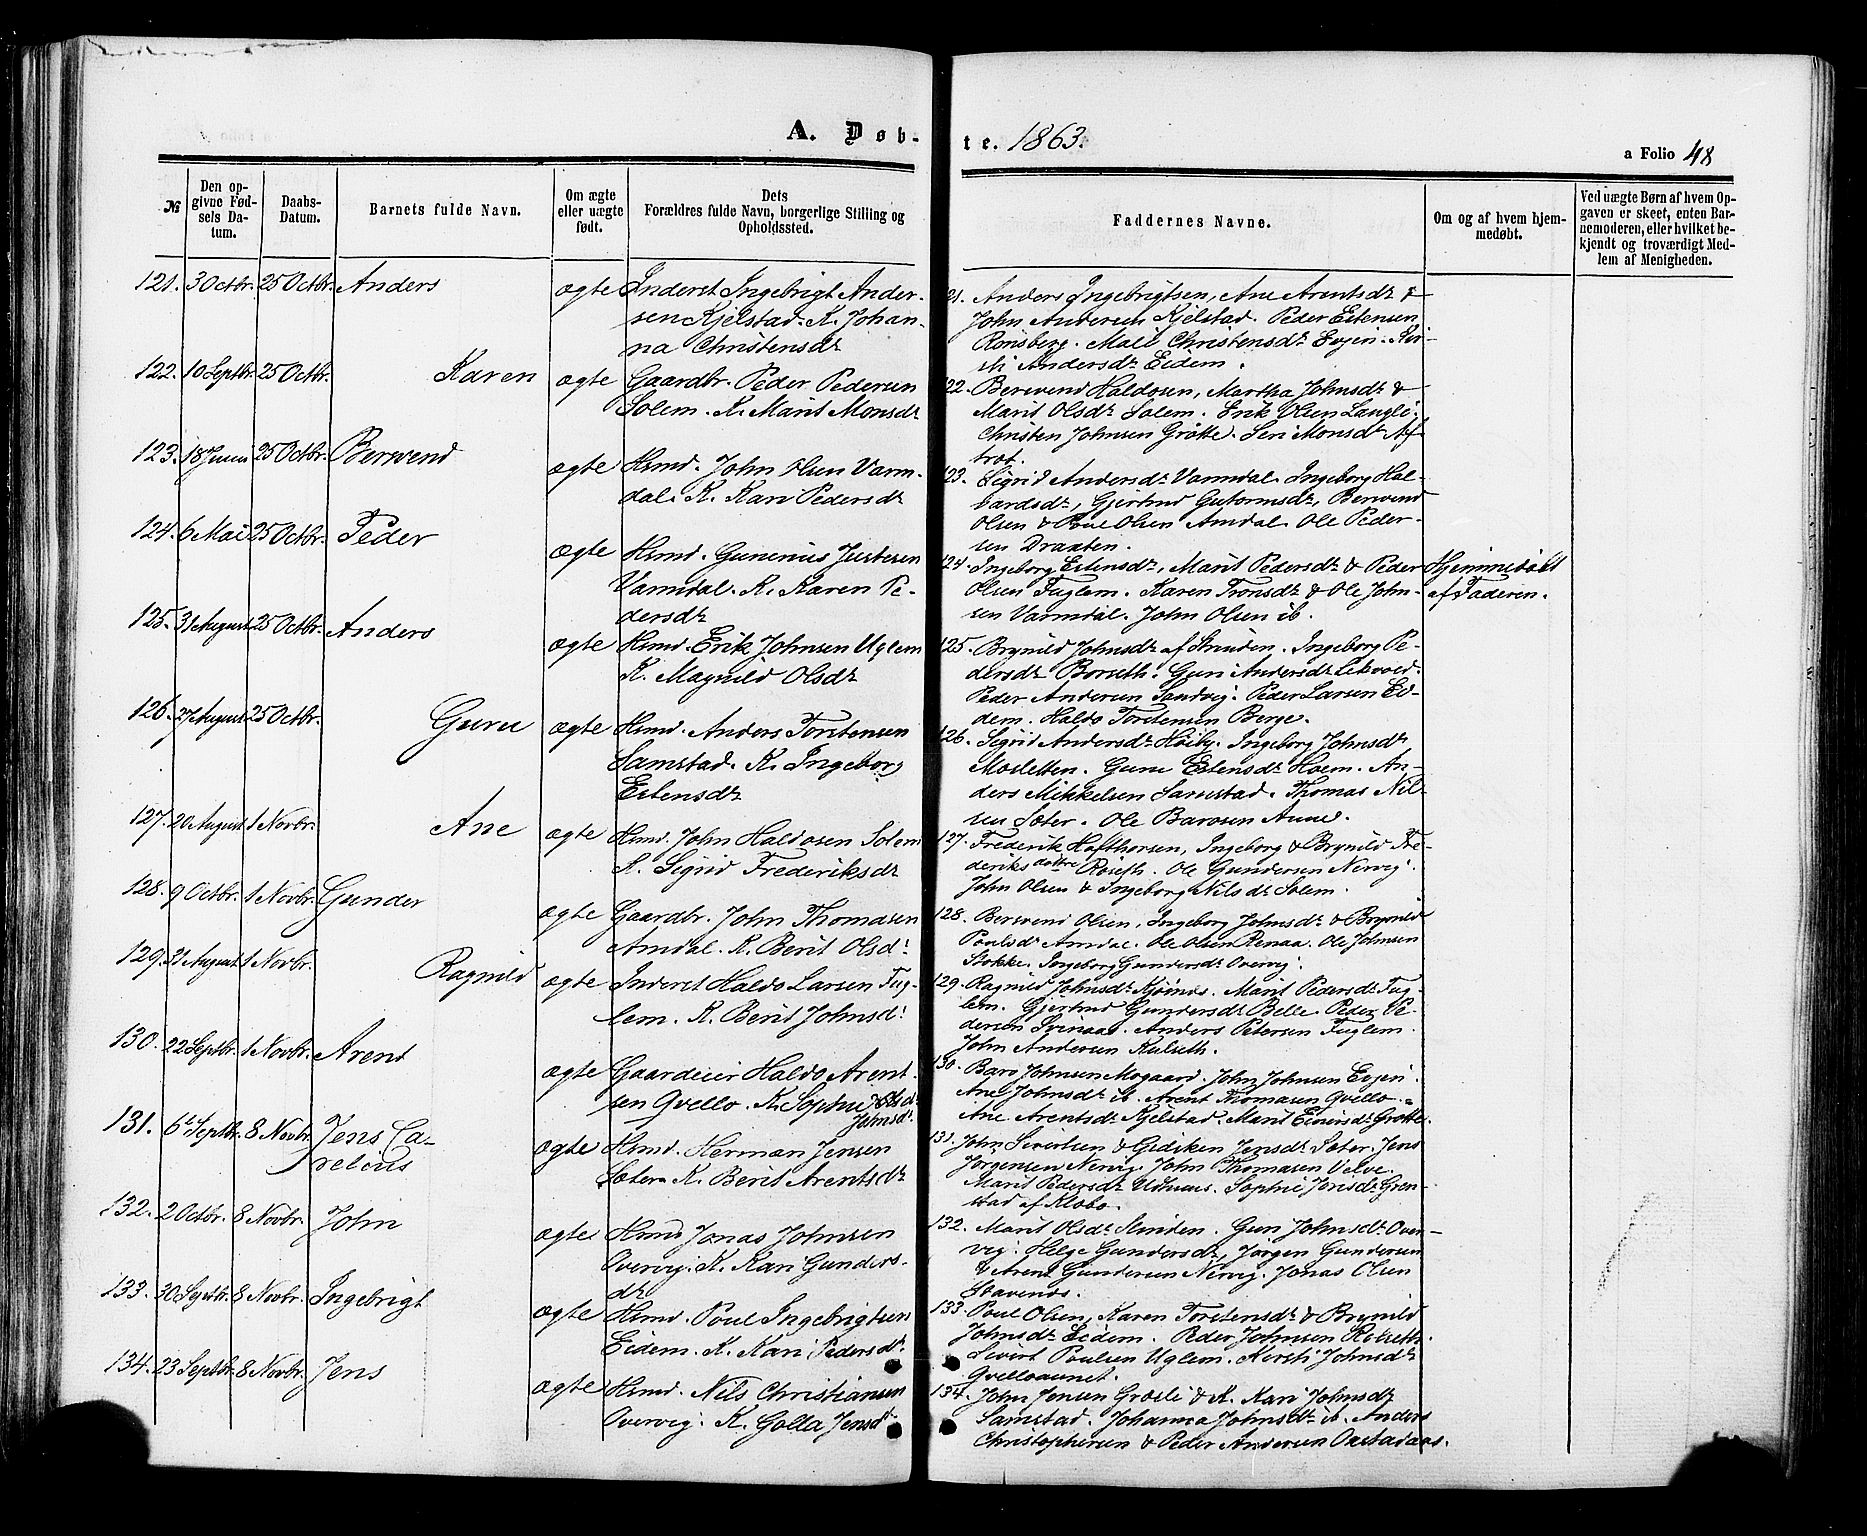 A. Døb-
te. 1863.
a Folio 48
№
Den op-
givne Fød-
sels Da-
tum.
Daabs-
Datum.
Barnets fulde Navn.
Om ægte
eller uægte
født.
Dets
Forældres fulde Navn, borgerlige Stilling og
Opholdssted.
Faddernes Navne.
Om og af hvem hjem-
medøbt.
Ved uægte Børn af hvem Op-
gaven er skeet, enten Bar-
nemoderen, eller hvilket be-
kjendt og troværdigt Med-
lem af Menigheden.
121. 3 Octbr. 25 Octbr. Anders ægte Inderst Ingebrigt Ander-
sen Kjelstad. K. Johan-
na Christensdr
121. Anders Ingebrigtsen, Ane Arentsdr &
John Andersen Kjelstad. Peder Estensen
Rønsberg. Mali Christensdr Evjen. Kir-
sti Andersdr Eidem.
122. 10 Septbr. 25 Octbr. Karen ægte Gaardbr. Peder Pedersen
Solem. K. Marit Monsdr
122. Bersvend Haldosen, Martha Johnsdr &
Marit Olsdr Solem. Erik Olsen Langli.
Christen Johnsen Grøtte. Seri Monsdr Af-
trøt.
123. 18 Juni 25 Octbr. Bersvend ægte Hsmd. John Olsen Varm-
dal. K. Kari Pedersdr
123. Sigrid Andersdr Varmdal. Ingeborg Hal-
vardsdr, Gjertrud Gutormsdr, Bersvend
Olsen & Poul Olsen Amdal. Ole Peder-
sen Draxten.
124. 6 Mai 25 Octbr. Peder ægte Hsmd. Gunerius Justesen
Varmdal. K. Karen Pe-
dersdr
124. Ingeborg Estensdr, Marit Pedersdr & Peder
Olsen Fuglem. Karen Tronsdr & Ole John-
sen Varmdal. John Olsen ib.
Hjemmedøbt
af Faderen.
125. 31 August 25 Octbr. Anders ægte Hsmd. Erik Johnsen Uglem
K. Magnild Olsdr
125. Brynild Johnsdr af Strinden. Ingeborg Pe-
dersdr Borseth. Guri Andersdr Lekvold.
Peder Andersen Sandvig. Peder Larsen Ei-
dem. Haldo Torstensen Berge.
126. 27 August 25 Octbr. Guru ægte Hsmd. Anders Torstensen
Samstad. K. Ingeborg
Estensdr
126. Sigrid Andersdr Høiby. Ingeborg Johnsdr
Mosletten. Guru Estensdr Hoem. An-
ders Mikkelsen Samstad. Thomas Nil-
sen Sæter. Ole Barosen Aune.
127. 20 August 1 Novbr. Ane ægte Hsmd. John Haldosen Solem
K. Sigrid Frederiksdr
127. Frederik Hafthorsen, Ingeborg & Brynild Fre-
deriksdøttre Røseth. Ole Gundersen Nervig.
John Olsen & Ingeborg Nilsdr Solem.
128. 9 Octbr. 1 Novbr. Gunder ægte Gaardbr. John Thomasen
Amdal. K. Berit Olsdr
128. Bersvend Olsen, Ingeborg Johnsdr & Brynild
Poulsdr Amdal. Ole Olsen Renaa. Ole Johnsen
Stokke. Ingeborg Gundersdr Overvig.
129. 21 August 1 Novbr. Ragnild ægte Inderst Haldo Larsen Fug-
lem. K. Berit Johnsdr
129. Ragnild Johnsdr Kjøsnes. Marit Pedersdr Fug-
lem. Gjertrud Gundersdr Belle. Peder Pe-
dersen Svenaas. Anders Petersen Fuglem.
John Andersen Kulseth.
130. 22 Septbr. 1 Novbr. Arent ægte Gaardeier Haldo Arent-
sen Qvello. K. Sophie Olsdr
Johnsdr
130. Baro Johnsen Mogaard. John Johnsen Evjen.
Ane Johnsdr ib. Arent Thomasen Qvello.
Ane Arentsdr Kjelstad. Marit Einersdr Grøtte.
131. 6te Septbr. 8 Novbr. Jens Ca-
relius ægte Hsmd. Herman Jensen
Sæter. K. Berit Arentsdr
131. John Sivertsen & Gidsken Jensdr Sæter. Jens
Jørgensen Nervig. John Thomasen Velve.
Marit Pedersdr Udhuus. Sophie Jensdr Gren-
stad af Klæbo.
132. 2 Octbr. 8 Novbr. John ægte Hsmd Jonas Johnsen
Overvig. K. Kari Gunders-
dr
132. Marit Olsdr Strinden. Guri Johnsdr Over-
vig. Helge Gundersdr, Jørgen Gundersen
& Arent Gundersen Nervig. Jonas Olsen
Stavenes.
133. 30 Septbr. 8 Novbr. Ingebrigt ægte Hsmd. Poul Ingebrigtsen
Eidem. K. Kari Pedersdr.
133. Poul Olsen, Karen Torstensdr & Brynild
Johnsdr Eidem. Peder Johnsen Rolseth.
Sivert Poulsen Uglem. Kersti Johnsdr
Qvelloaunet.
134. 23 Septbr. 8 Novbr. Jens ægte Hsmd. Nils Christiansen
Overvig. K. Golla Jensdr
134. John Jensen Græsli & K. Kari Johnsdr
Samstad. Johanna Johnsdr ib. Anders
Christophersen & Peder Andersen Oxstadaas.